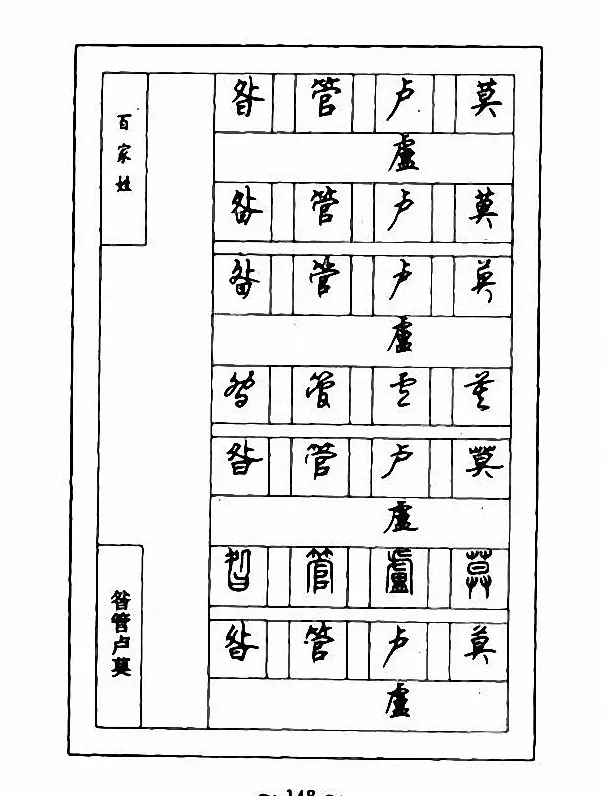 百家姓
昝管卢莫
昝 管 卢 莫
盧
昝 管 卢 莫
昝 管 卢 莫
盧
昝 管 卢 莫
昝 管 卢 莫
盧
昝 管 盧 莫
昝 管 卢 莫
盧
148